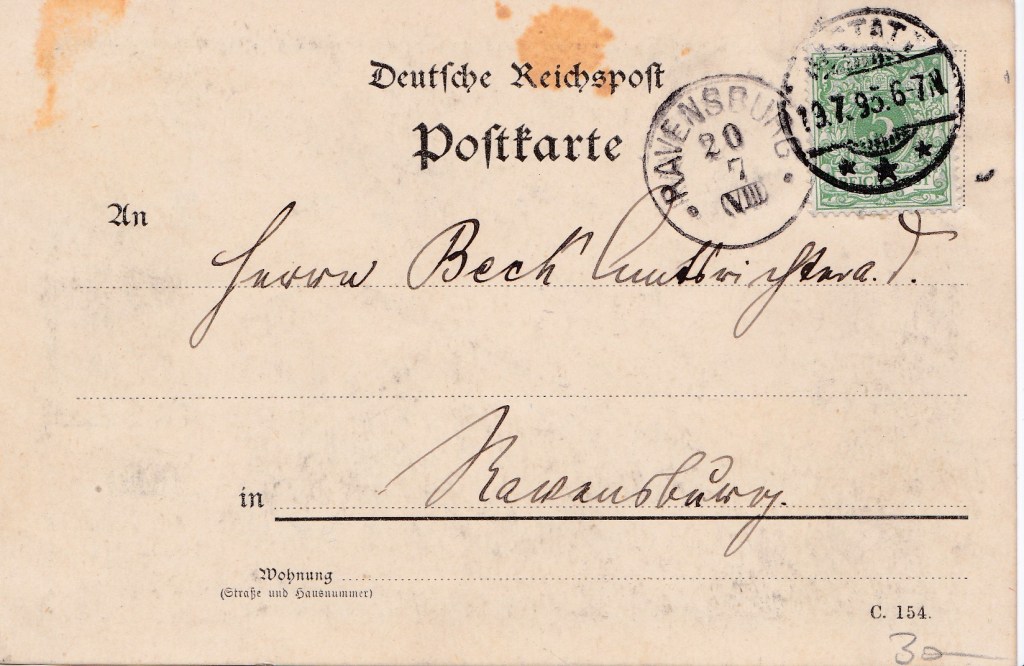 Deutsche Reichspost
Postkarte
RAVENSBURG
20
7
(VIII)
19.7.95.6-7N
5
An
Herrn Beck Amtsrichter a. D.
in Ravensburg.
Wohnung
(Straße und Hausnummer)
C. 154.
30